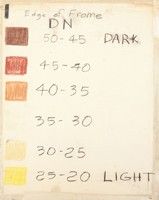 "Edge of Frame"
DN
50-45 DARK
45-40
40-35
35-30
30-25
25-20 LIGHT